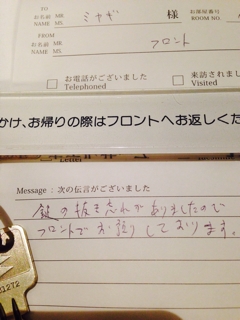 TO
お名前 MR ミヤギ 様 お部屋番号
NAME MS ROOM NO.
FROM
お名前 MR フロント
NAME MS
□ お電話がございました □ 来訪されまし
Telephoned Visited
かけ、お帰りの際はフロントへお返しくだ
Letter
Message : 次の伝言がございました
鍵の抜き忘れがありましたので
フロントでお預りしております。
1272